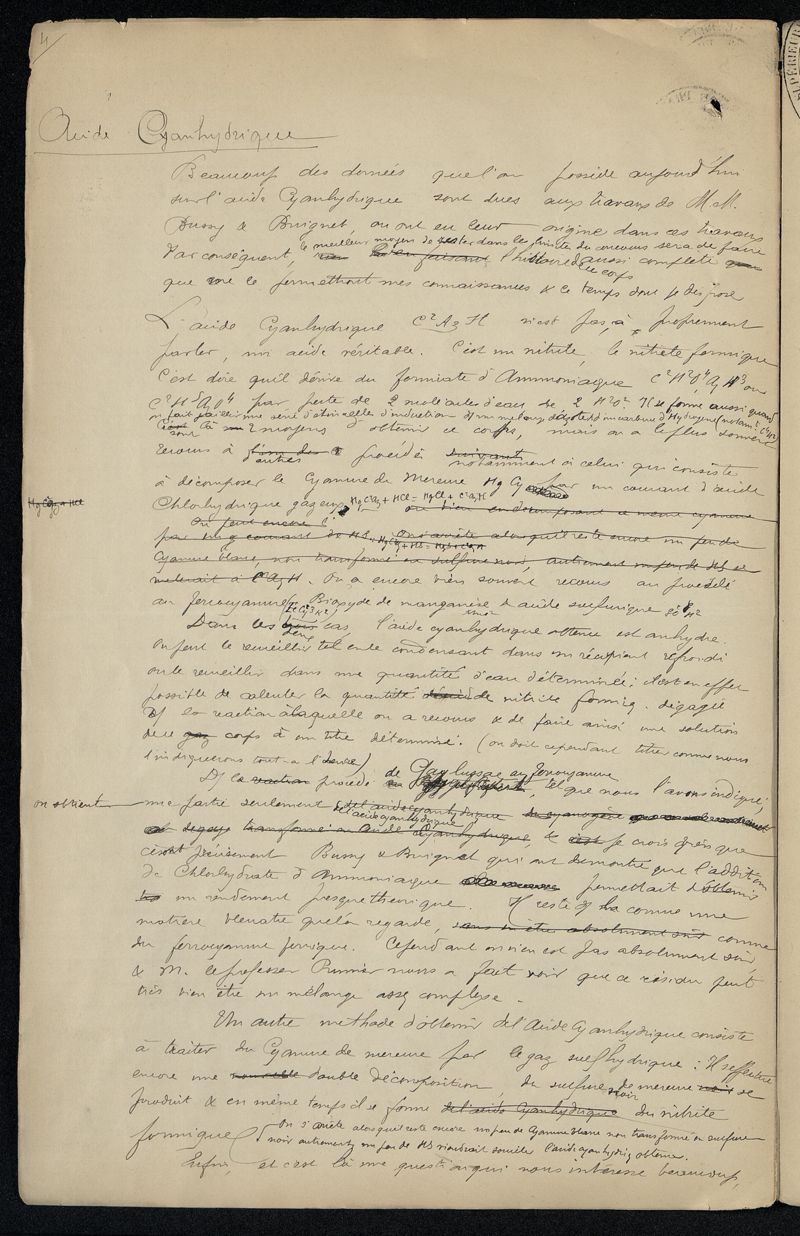 4
Acide Cyanhydrique
Beaucoup des données que l'on possède aujourd'hui
sur l'acide Cyanhydrique sont dues aux travaux de M.M.
Bussy & Buignet, ou ont eu leur origine dans ces travaux
le meilleur moyen de rester dans les limites du concours sera de faire
Par conséquent, l'histoire de ce corps aussi complète
que me le permettront mes connaissances & le temps dont je dispose
L'acide Cyanhydrique C²AzH n'est pas, à proprement
parler, un acide véritable. C'est un nitrile, le nitrile formique
C'est dire qu'il dérive du formiate d'Ammoniaque C²H²O⁴AzH³ ou
par perte de 2 molécules d'eau de 2 H²O². Il se forme aussi quand
on fait jaillir une série d'étincelles d'induction
2 moyens d'obtenir ce corps, mais on a le plus souvent
recours à d'autres procédés notamment à celui qui consiste
à décomposer le Cyanure de Mercure Hg Cy par un courant d'acide
HgC²Az + HCl
Chlorhydrique gazeux HgC²Az + HCl = HgCl + C²AzH ou bien en décomposant ce même cyanure
On peut encore
par un courant de HS. On s'arrête alors qu'il reste encore un peu de
HgC²Az + HS = HgS + C²AzH
Cyanure blanc, non transformé en sulfure noir, autrement un peu de HS se
mêlerait à C²AzH. On a encore bien souvent recours au procédé
au ferrocyanure, Bioxyde de manganèse & acide sulfurique
Dans les deux cas, l'acide cyanhydrique obtenu est anhydre.
On peut le recueillir tel en le condensant dans un récipient refroidi
ou le recueillir dans une quantité d'eau déterminée; il est en effet
possible de calculer la quantité de nitrile formiq. dégagée
la réaction à laquelle on a recours & de faire ainsi une solution
de ce gaz corps à un titre déterminé. (on doit cependant titrer comme nous
l'indiquerons tout à l'heure)
procédé de Gay lussac au ferrocyanure, tel que nous l'avons indiqué;
on obtient
une partie seulement de l'acide cyanhydrique
transformé en acide Cyanhydrique, & je crois que
ce sont précisément Bussy & Buignet qui ont démontré que l'addition
de Chlorhydrate d'Ammoniaque permettait d'obtenir
un rendement presque théorique. Il reste comme une
matière bleuatre que l'on regarde, sans en être absolument sûr comme
du ferrocyanure ferrique. Cependant on n'en est pas absolument sûr
& M. le professeur Prunier nous a fait voir que ce résidu peut
très bien être un mélange assez complexe.
Un autre méthode d'obtenir de l'Acide Cyanhydrique consiste
à traiter du Cyanure de mercure par le gaz sulfhydrique : Il s'effectue
encore une double décomposition, du sulfure noir de mercure se
produit & en même temps il se forme de l'acide Cyanhydrique du nitrile
formique (On s'arrête alors qu'il reste encore un peu de Cyanure blanc non transformé en sulfure
noir autrement un peu de HS viendrait souiller l'acide cyanhydriq obtenu.
Enfin, et c'est là une question qui nous intéresse beaucoup,